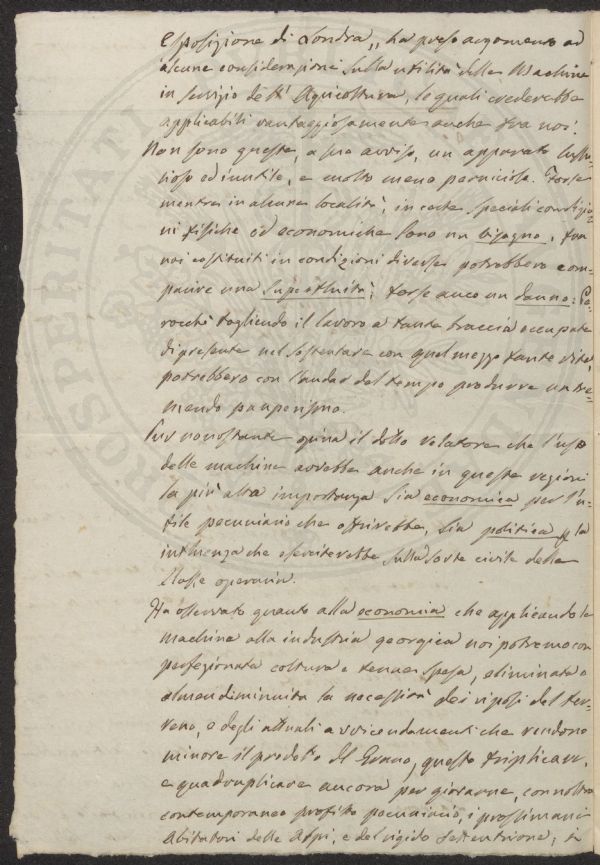 esposizione di Londra,, ha preso argomento ad
alcune considerazioni sulla utilità delle Machine
in servizio dell' Agricoltura, le quali crederebbe
applicabili vantaggiosamente anche tra noi.
Non sono queste, a suo avviso, un apparato lussu-
rioso ed inutile, e molto meno pernicioso. Forse
mentre in alcune località, in certe speciali condizio-
ni fisiche ed economiche sono un bisogno, fra
noi costituiti in condizioni diverse potrebbero com-
parire una superfluità, forse anco un danno: Pe-
rocchè togliendo il lavoro a tante braccia occupate
di presente nel sostentare con quel mezzo tante vite,
potrebbero con l'andar del tempo produrre un tre-
mendo pauperismo.
Pur nonostante opina il dotto relatore che l'uso
delle machine avrebbe anche in queste regioni
la più alta importanza sia economica per l'u-
tile pecuniario che offrirebbe, sia politica p. la
influenza che eserciterebbe sulla sorte civile della
classe operaia.
Ha osservato quanto alla economia che applicando le
machine alla industria georgica noi potremo con
perfezionata coltura e tenue spesa, eliminata o
almen diminuita la necessità dei riposi del ter-
reno, e degli attuali avvicendamenti che rendono
minore il prodotto del Grano, questo triplicare,
e quadruplicare ancora per giovarne, con nostro
contemporaneo profitto pecuniario, i prossimani
Abitatori delle Alpi, e del rigido settentrione; i